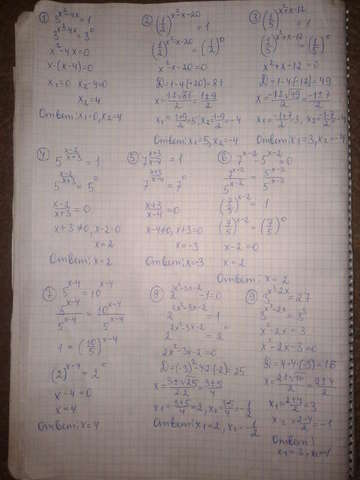 ① 3^{x²-4x} = 1
3^{x²-4x} = 3⁰
x² - 4x = 0
x·(x-4) = 0
x₁ = 0 x₂-4=0
x₂ = 4
Ответ: x₁=0, x₂=4
② (1/2)^{x²-x-20} = 1
(1/2)^{x²-x-20} = (1/2)⁰
x²-x-20=0
D=1-4·(-20)=81
x = (1±√81)/2 = (1±9)/2
x₁ = (1+9)/2 = 5, x₂ = (1-9)/2 = -4
Ответ: x₁=5, x₂=-4
x²+x-12=0
D=1-4·(-12)=49
x = (-1±√49)/2 = (-1±7)/2
x₁ = (-1+7)/2 = 3, x₂ = (-1-7)/2 = -4
Ответ: x₁=3, x₂=-4
④ 5^{(x-2)/(x+3)} = 1
5^{(x-2)/(x+3)} = 5⁰
(x-2)/(x+3) = 0
x+3≠0, x-2=0
x=2
Ответ: x=2
⑤ 7^{(x+3)/(x-4)} = 1
7^{(x+3)/(x-4)} = 7⁰
(x+3)/(x-4) = 0
x-4≠0, x+3=0
x=-3
Ответ: x=-3
⑥ 7^{x-2} - 5^{x-2} = 0
7^{x-2}/5^{x-2} = 5^{x-2}/5^{x-2}
(7/5)^{x-2} = 1
(7/5)^{x-2} = (7/5)⁰
x-2=0
x=2
Ответ: x=2
⑦ 5^{x-4} = 10^{x-4}
5^{x-4}/5^{x-4} = 10^{x-4}/5^{x-4}
1 = (10/5)^{x-4}
(2)^{x-4} = 2⁰
x-4=0
x=4
Ответ: x=4
⑧ 2^{2x²-3x-2} - 1 = 0
2^{2x²-3x-2} = 1
2^{2x²-3x-2} = 2⁰
2x²-3x-2=0
D=(-3)²-4·2·(-2)=25
x = (3±√25)/4 = (3±5)/4
x₁ = (3+5)/4 = 2, x₂ = (3-5)/4 = -1/2
Ответ: x₁=2, x₂=-1/2
⑨ 3^{x²-2x} = 27
3^{x²-2x} = 3³
x²-2x=3
x²-2x-3=0
D=4-4·(-3)=16
x = (2±√16)/2 = (2±4)/2
x₁ = (2+4)/2 = 3
x₂ = (2-4)/2 = -1
Ответ:
x₁=3, x₂=-1